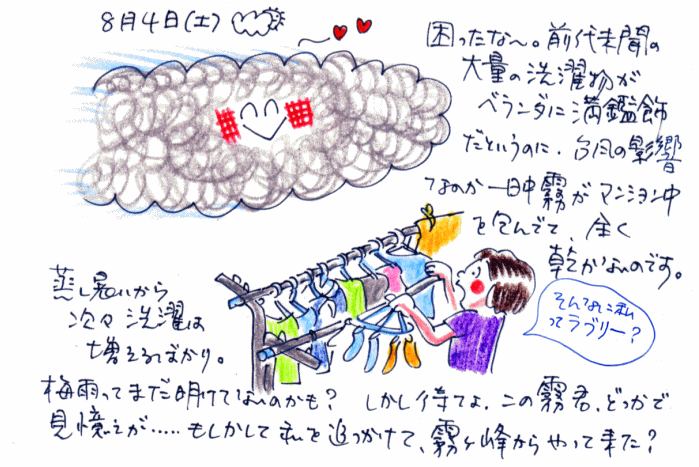 8月4日(土)
困ったな〜。前代未聞の
大量の洗濯物が
ベランダに満艦飾
だというのに、台風の影響
なのか一日中霧がマンション中
を包んでて、全く
乾かないのです。
蒸し暑いから
次々洗濯は
増えるばかり。
そんなに私
ってラブリー?
梅雨ってまだ明けてないのかも? しかし待てよ、この霧君、どっかで
見憶えが.....もしかして私を追っかけて、霧ヶ峰からやって来た?